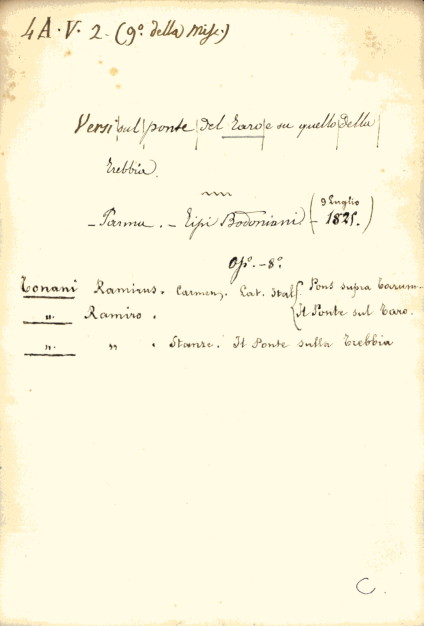 4A. V. 2. (9º. della Misc.)
Versi sul ponte del Taro e su quello della
Trebbia.
— Parma. — Tipi Bodoniani (9 Luglio — 1825.)
Opº. — 8º.
Tonani Ramirus. Carmen. Lat. Ital. { Pons supra Tarum —
„ Ramiro. { Il Ponte sul Taro.
„ „ . Stanze. Il Ponte sulla Trebbia
C.